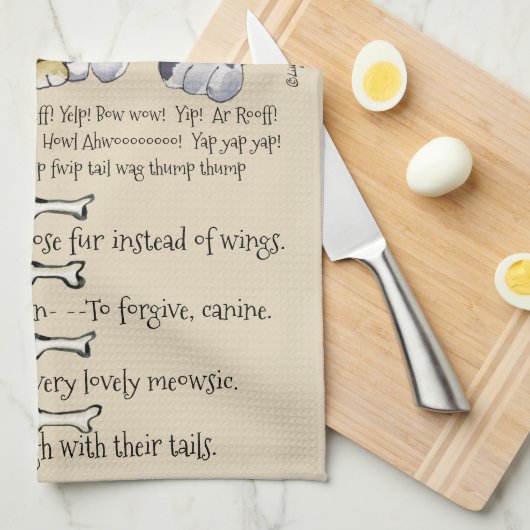 ©Lin
ff! Yelp! Bow wow! Yip! Ar Rooff!
Howl Ahwoooooooo! Yap yap yap!
p fwip tail wag thump thump
ose fur instead of wings.
n- --To forgive, canine.
very lovely meowsic.
gh with their tails.